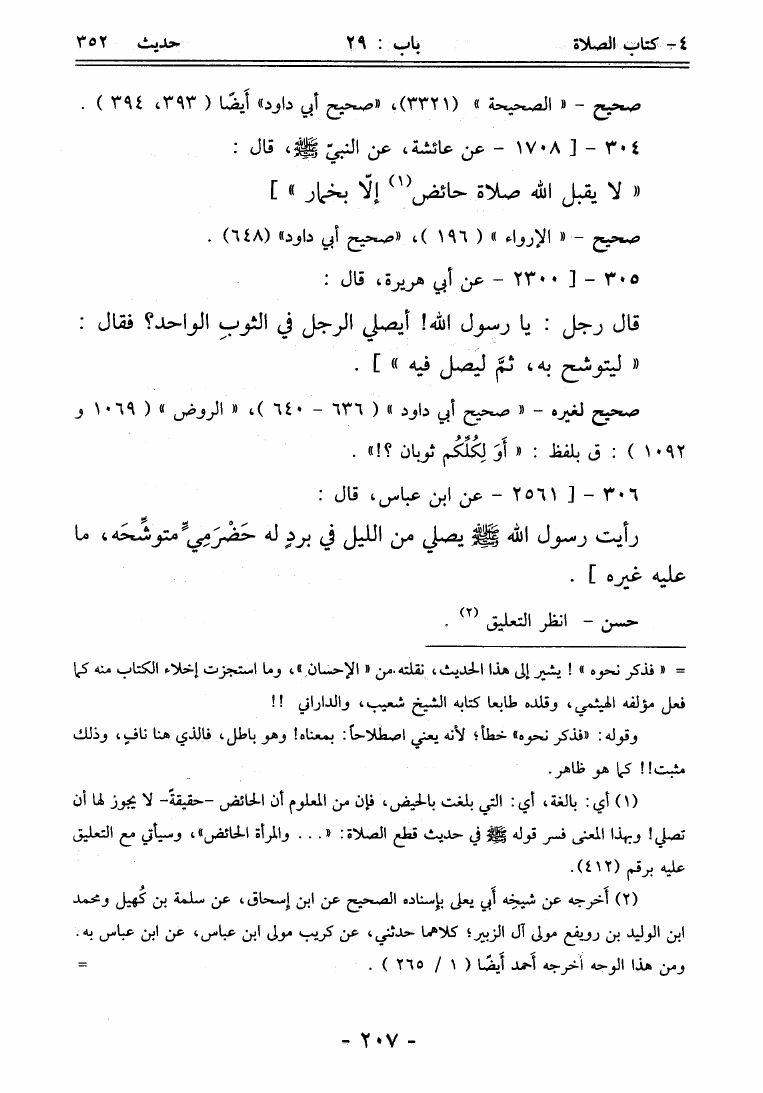 ٤- كتاب الصلاة باب : ٢٩ حديث ٣٥٢
صحيح - « الصحيحة » (٣٣٢١)، «صحيح أبي داود» أيضًا ( ٣٩٣، ٣٩٤ ) .
٣٠٤ - [ ١٧٠٨ - عن عائشة، عن النبيّ ﷺ، قال :
« لا يقبل الله صلاة حائض(١) إلّا بخمار » ]
صحيح - « الإرواء » ( ١٩٦ )، «صحيح أبي داود» (٦٤٨) .
٣٠٥ - [ ٢٣٠٠ - عن أبي هريرة، قال :
قال رجل : يا رسول الله! أيصلي الرجل في الثوبِ الواحد؟ فقال :
« ليتوشح به، ثمَّ ليصل فيه » ] .
صحيح لغيره - « صحيح أبي داود » ( ٦٣٦ - ٦٤٠ )، « الروض » ( ١٠٦٩ و
١٠٩٢ ) : ق بلفظ : « أَوَ لِكُلِّكُم ثوبان ؟!» .
٣٠٦ - [ ٢٥٦١ - عن ابن عباس، قال :
رأيت رسول الله ﷺ يصلي من الليل في بردٍ له حَضْرَمِيٍّ متوشِّحَه، ما
عليه غيره ] .
حسن - انظر التعليق (٢) .
= « فذكر نحوه » ! يشير إلى هذا الحديث، نقلته من « الإحسان »، وما استجزت إخلاء الكتاب منه كما
فعل مؤلفه الهيثمي، وقلده طابعا كتابه الشيخ شعيب، والداراني !!
وقوله: «فذكر نحوه» خطأ؛ لأنه يعني اصطلاحاً: بمعناه! وهو باطل، فالذي هنا نافٍ، وذلك
مثبت!! كما هو ظاهر.
(١) أي: بالغة، أي: التي بلغت بالحيض، فإن من المعلوم أن الحائض -حقيقةً- لا يجوز لها أن
تصلي! وبهذا المعنى فسر قوله ﷺ في حديث قطع الصلاة: «... والمرأة الحائض»، وسيأتي مع التعليق
عليه برقم (٤١٢).
(٢) أخرجه عن شيخِه أبي يعلى بإسناده الصحيح عن ابن إسحاق، عن سلمة بن كُهيل ومحمد
ابن الوليد بن رويفع مولى آل الزبير؛ كلاهما حدثني، عن كريب مولى ابن عباس، عن ابن عباس به.
ومن هذا الوجه أخرجه أحمد أيضًا ( ١ / ٢٦٥ ) . =
- ٢٠٧ -